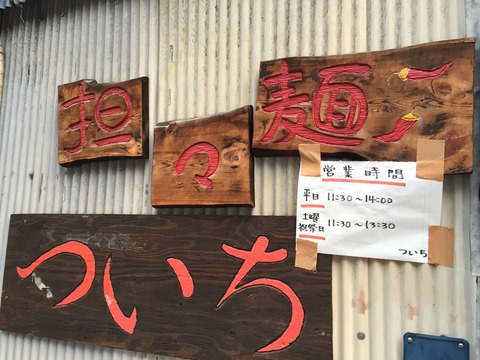 担々麺
営業時間
平日 11:30~14:00
土曜
祝祭日 11:30~13:30
ついち
ついち